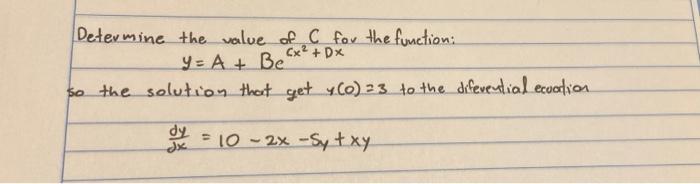 Determine the value of C for the function:
y = A + Be^{Cx² + Dx}
so the solution that get y(0) = 3 to the diferential ecuation
dy/dx = 10 - 2x - 5y + xy